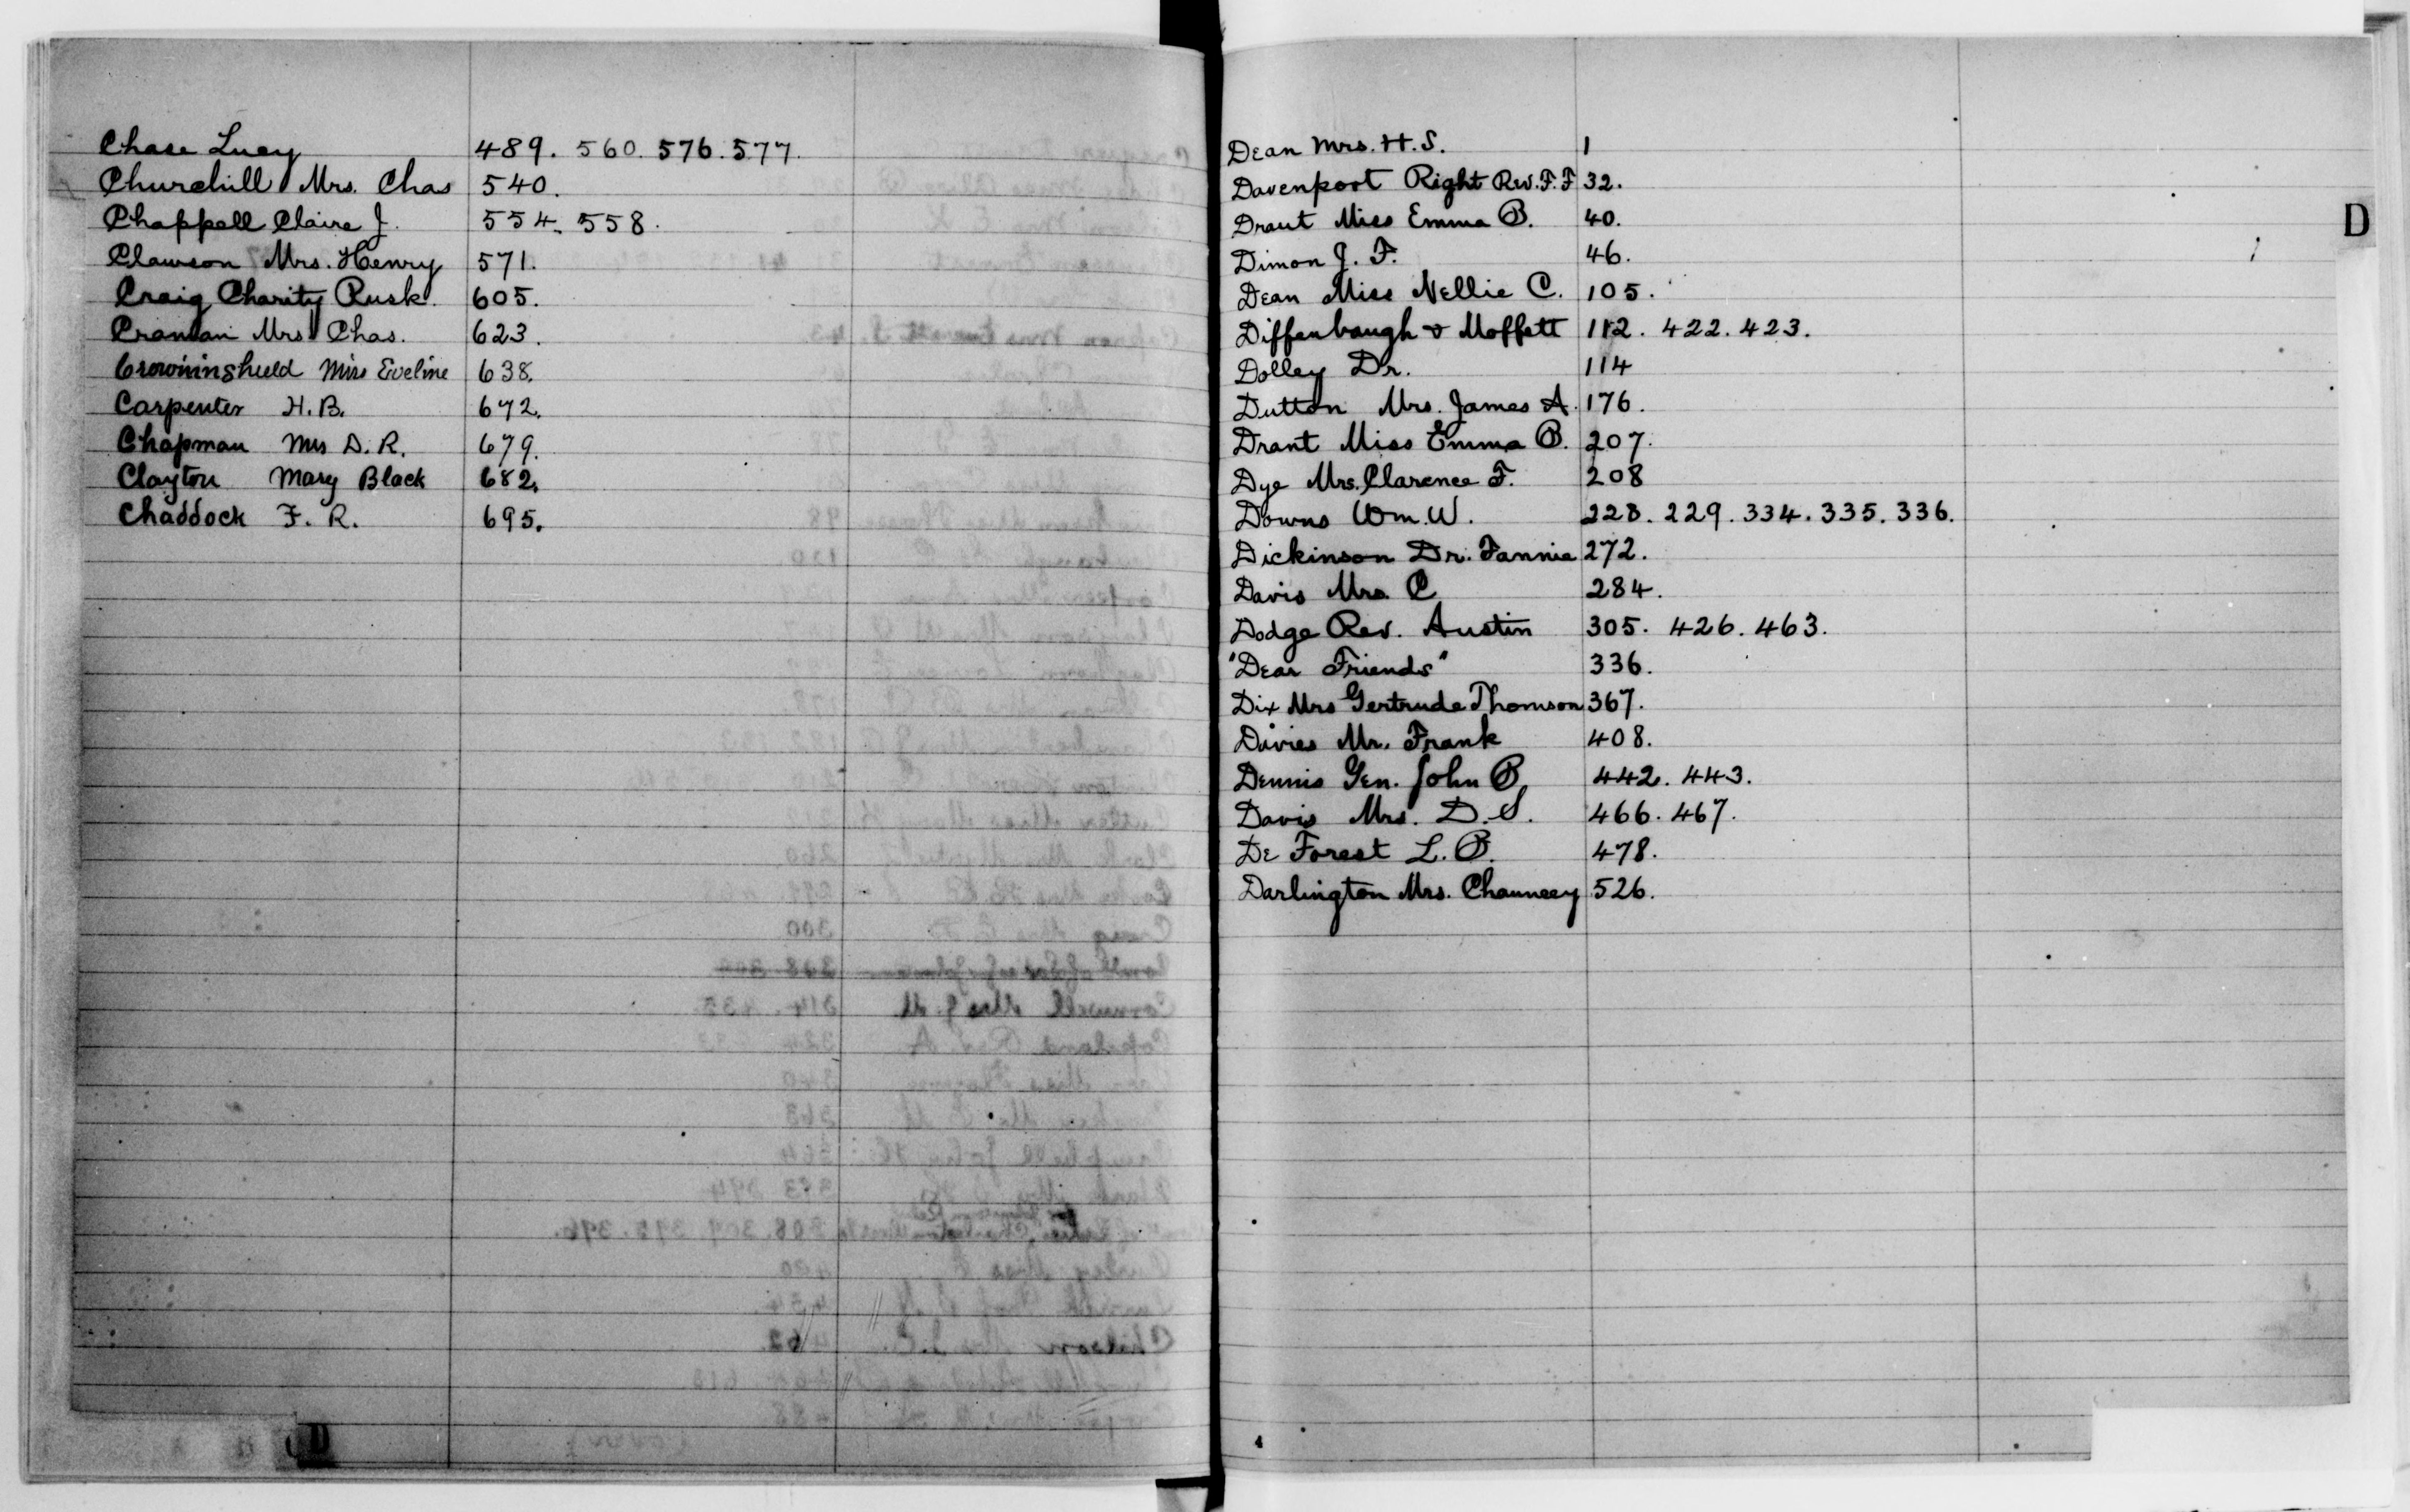 Chase Lucy 489. 560. 576. 577.
Churchill Mrs. Chas 540.
Chappell Claire J. 554. 558.
Clawson Mrs. Henry 571.
Craig Charity Rusk. 605.
Mrs Chas. 623.
Crowninshield Miss Eveline 638.
Carpenter H. B. 672.
Chapman Mrs D. R. 679.
Clayton Mary Black 682.
Chaddock F. R. 695.
D
Dean Mrs. H. S. 1
Davenport Right Rev. F. F 32.
Draut Miss Emma B. 40.
Dimon J. F. 46.
Dean Miss Nellie C. 105.
Diffenbaugh & Moffett 112. 422. 423.
Dolley Dr. 114
Dutton Mrs. James A. 176.
Drant Miss Emma B. 207.
Dye Mrs. Clarence F. 208
Downs Wm. W. 228. 229. 334. 335. 336.
Dickinson Dr. Fannie 272.
Davis Mrs C 284.
Dodge Rev. Austin 305. 426. 463.
"Dear Friends" 336.
Dix Mrs Gertrude Thomson 367.
Davies Mr. Frank 408.
Dennis Gen. John B. 442. 443.
Davis Mrs. D. S. 466. 467.
De Forest L. B. 478.
Darlington Mrs. Chauncey 526.
D